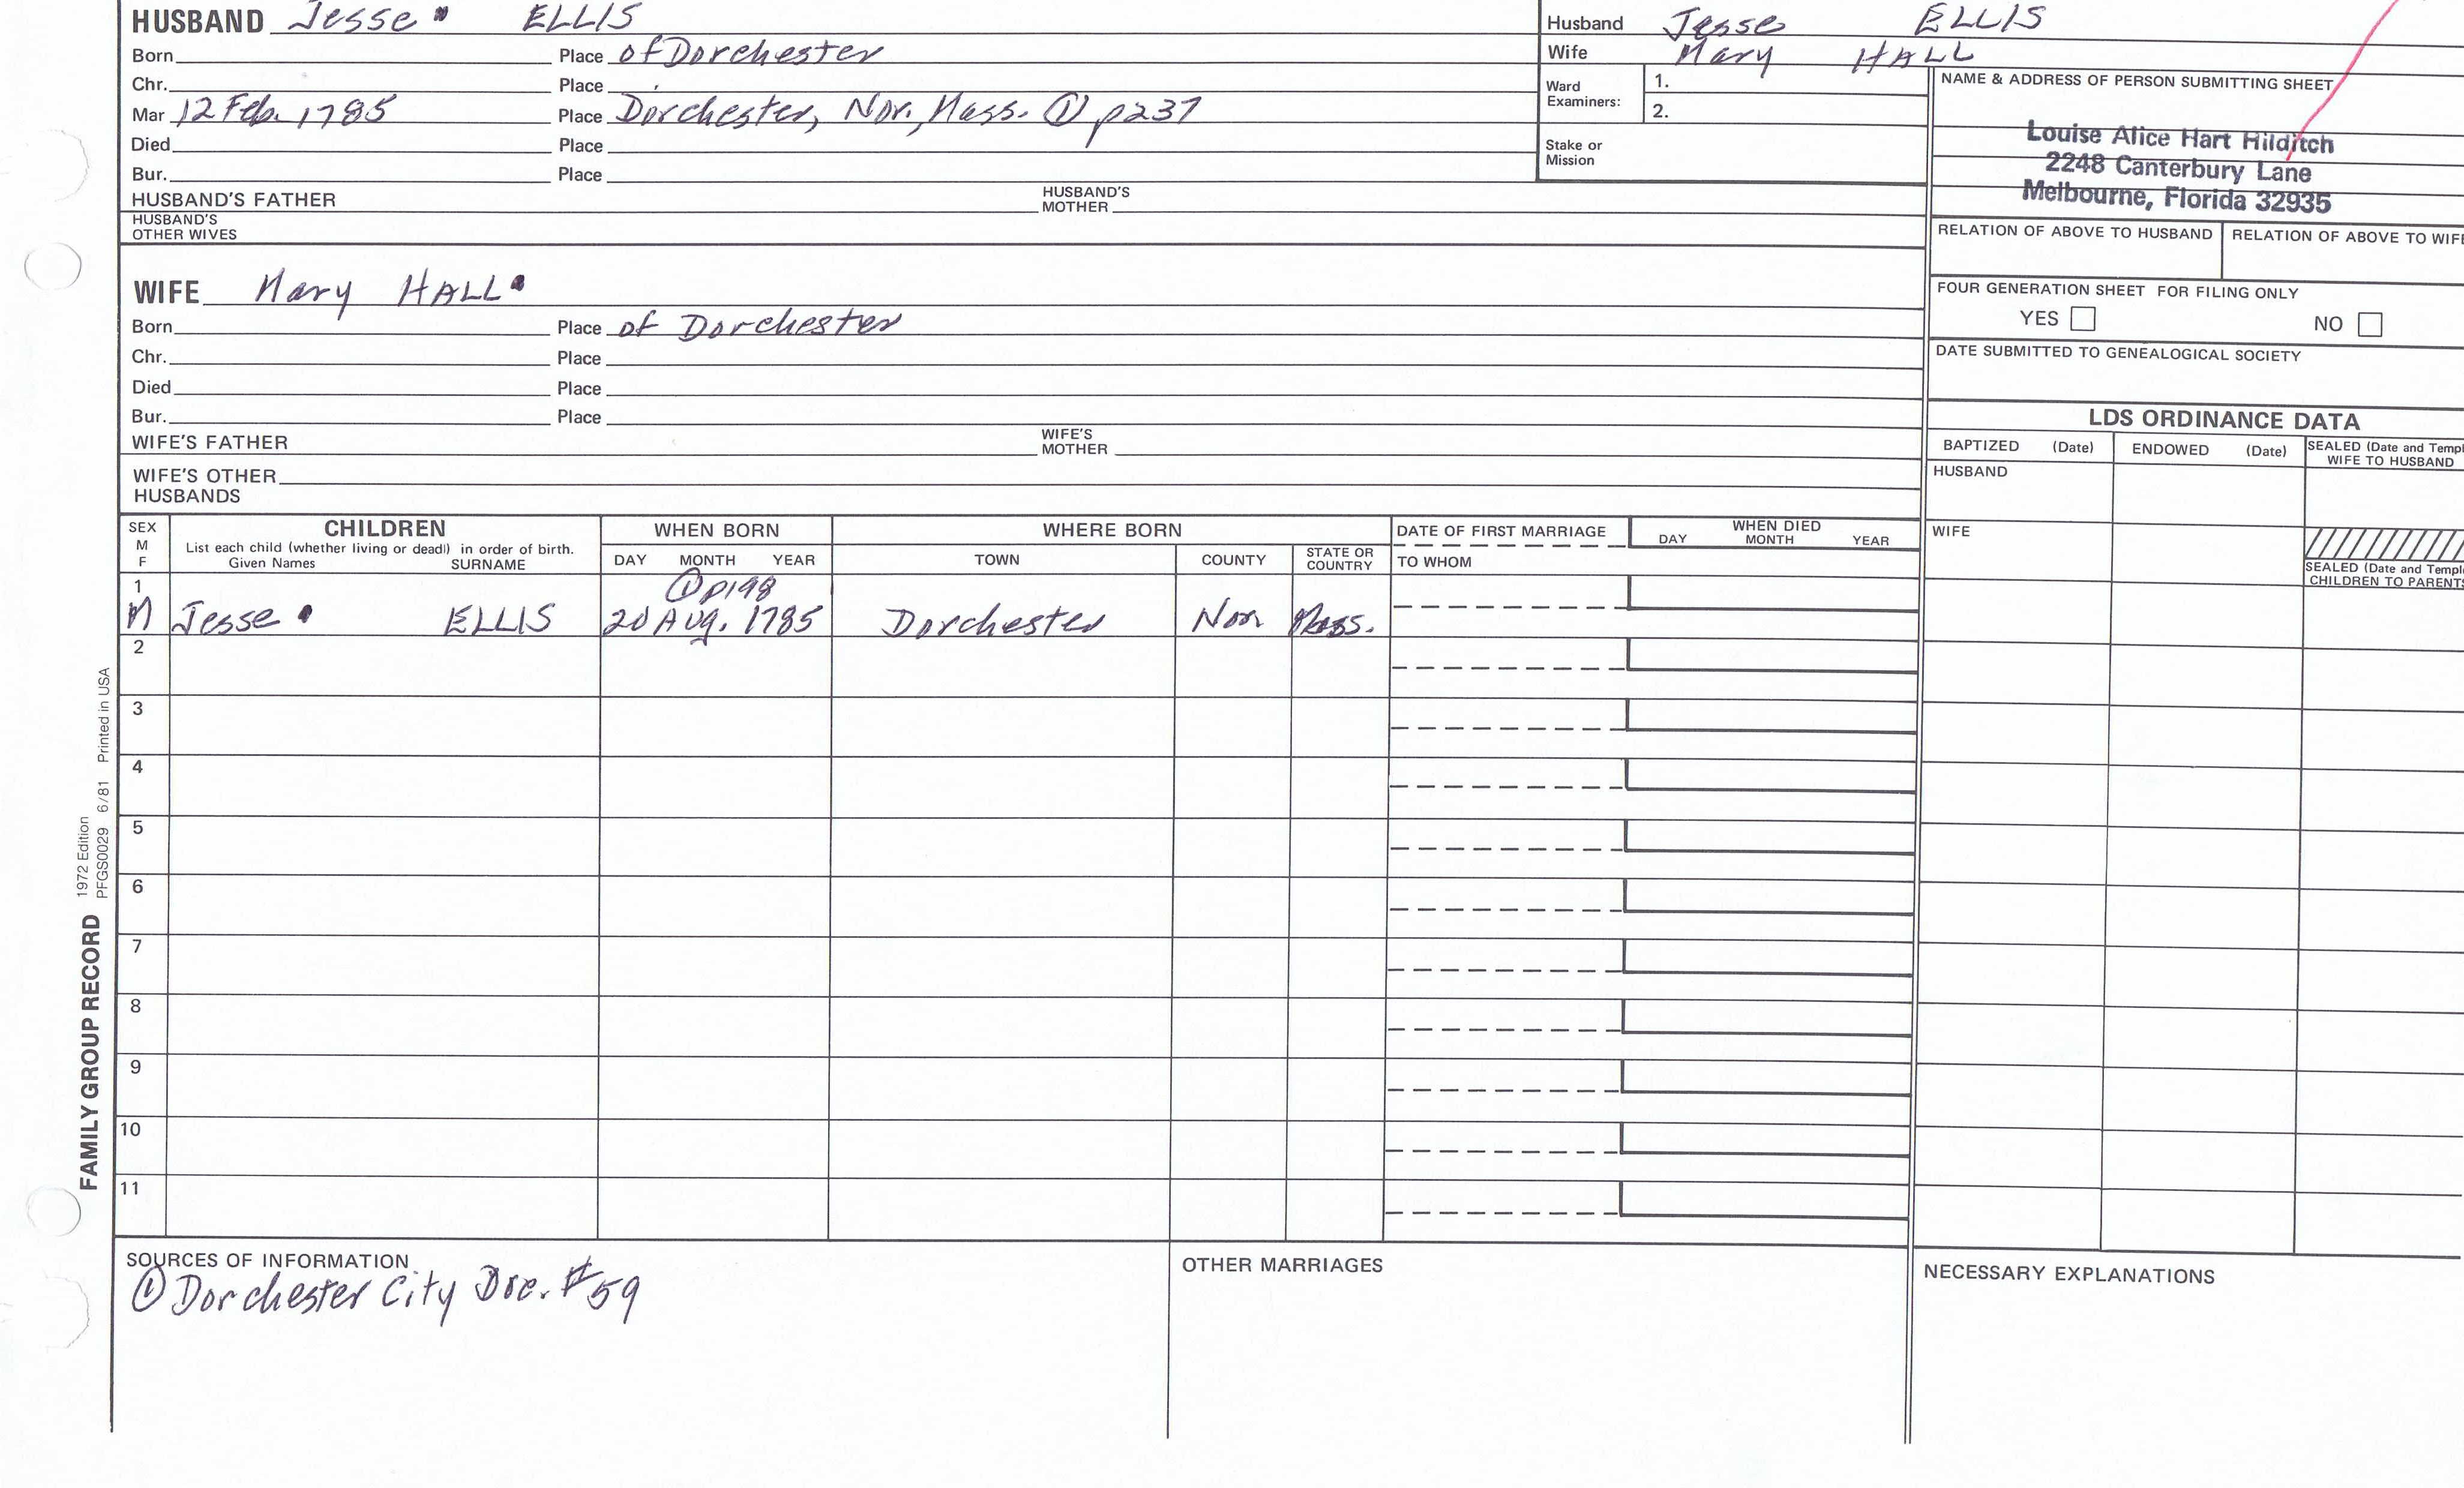 HUSBAND Jesse ELLIS
Born Place of Dorchester
Chr. Place
Mar 12 Feb. 1785 Place Dorchester, Nor., Mass. ① p237
Died Place
Bur. Place
HUSBAND'S FATHER HUSBAND'S MOTHER
HUSBAND'S OTHER WIVES
Husband Jesse ELLIS
Wife Mary HALL
Ward Examiners: 1.
2.
Stake or Mission
NAME & ADDRESS OF PERSON SUBMITTING SHEET
Louise Alice Hart Hilditch
2248 Canterbury Lane
Melbourne, Florida 32935
RELATION OF ABOVE TO HUSBAND RELATION OF ABOVE TO WIFE
FOUR GENERATION SHEET FOR FILING ONLY
YES NO
DATE SUBMITTED TO GENEALOGICAL SOCIETY
WIFE Mary HALL
Born Place of Dorchester
Chr. Place
Died Place
Bur. Place
WIFE'S FATHER WIFE'S MOTHER
WIFE'S OTHER HUSBANDS
LDS ORDINANCE DATA
BAPTIZED (Date) ENDOWED (Date) SEALED (Date and Templ
WIFE TO HUSBAND
HUSBAND
WIFE
SEALED (Date and Templ
CHILDREN TO PARENTS
SEX M F CHILDREN WHEN BORN WHERE BORN DATE OF FIRST MARRIAGE WHEN DIED
List each child (whether living or dead) in order of birth.
Given Names SURNAME DAY MONTH YEAR TOWN COUNTY STATE OR COUNTRY TO WHOM DAY MONTH YEAR
1 ① p198
M Jesse ELLIS 20 Aug. 1785 Dorchester Nor. Mass.
2
3
4
5
6
7
8
9
10
11
SOURCES OF INFORMATION OTHER MARRIAGES NECESSARY EXPLANATIONS
① Dorchester City Doc. #59
FAMILY GROUP RECORD 1972 Edition
PFGS0029 6/81 Printed in USA